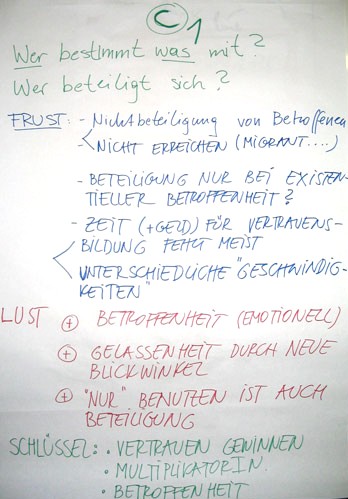 C1
Wer bestimmt was mit?
Wer beteiligt sich?
FRUST: - Nichtbeteiligung von Betroffenen
- NICHT ERREICHEN (MIGRANT....)
- BETEILIGUNG NUR BEI EXISTEN-
TIELLER BETROFFENHEIT?
- ZEIT (+GELD) FÜR VERTRAUENS-
BILDUNG FEHLT MEIST
UNTERSCHIEDLICHE "GESCHWINDIG-
KEITEN"
LUST + BETROFFENHEIT (EMOTIONELL)
+ GELASSENHEIT DURCH NEUE
BLICKWINKEL
+ "NUR" BENUTZEN IST AUCH
BETEILIGUNG
SCHLÜSSEL: • VERTRAUEN GEWINNEN
• MULTIPLIKATORIN
• BETROFFENHEIT